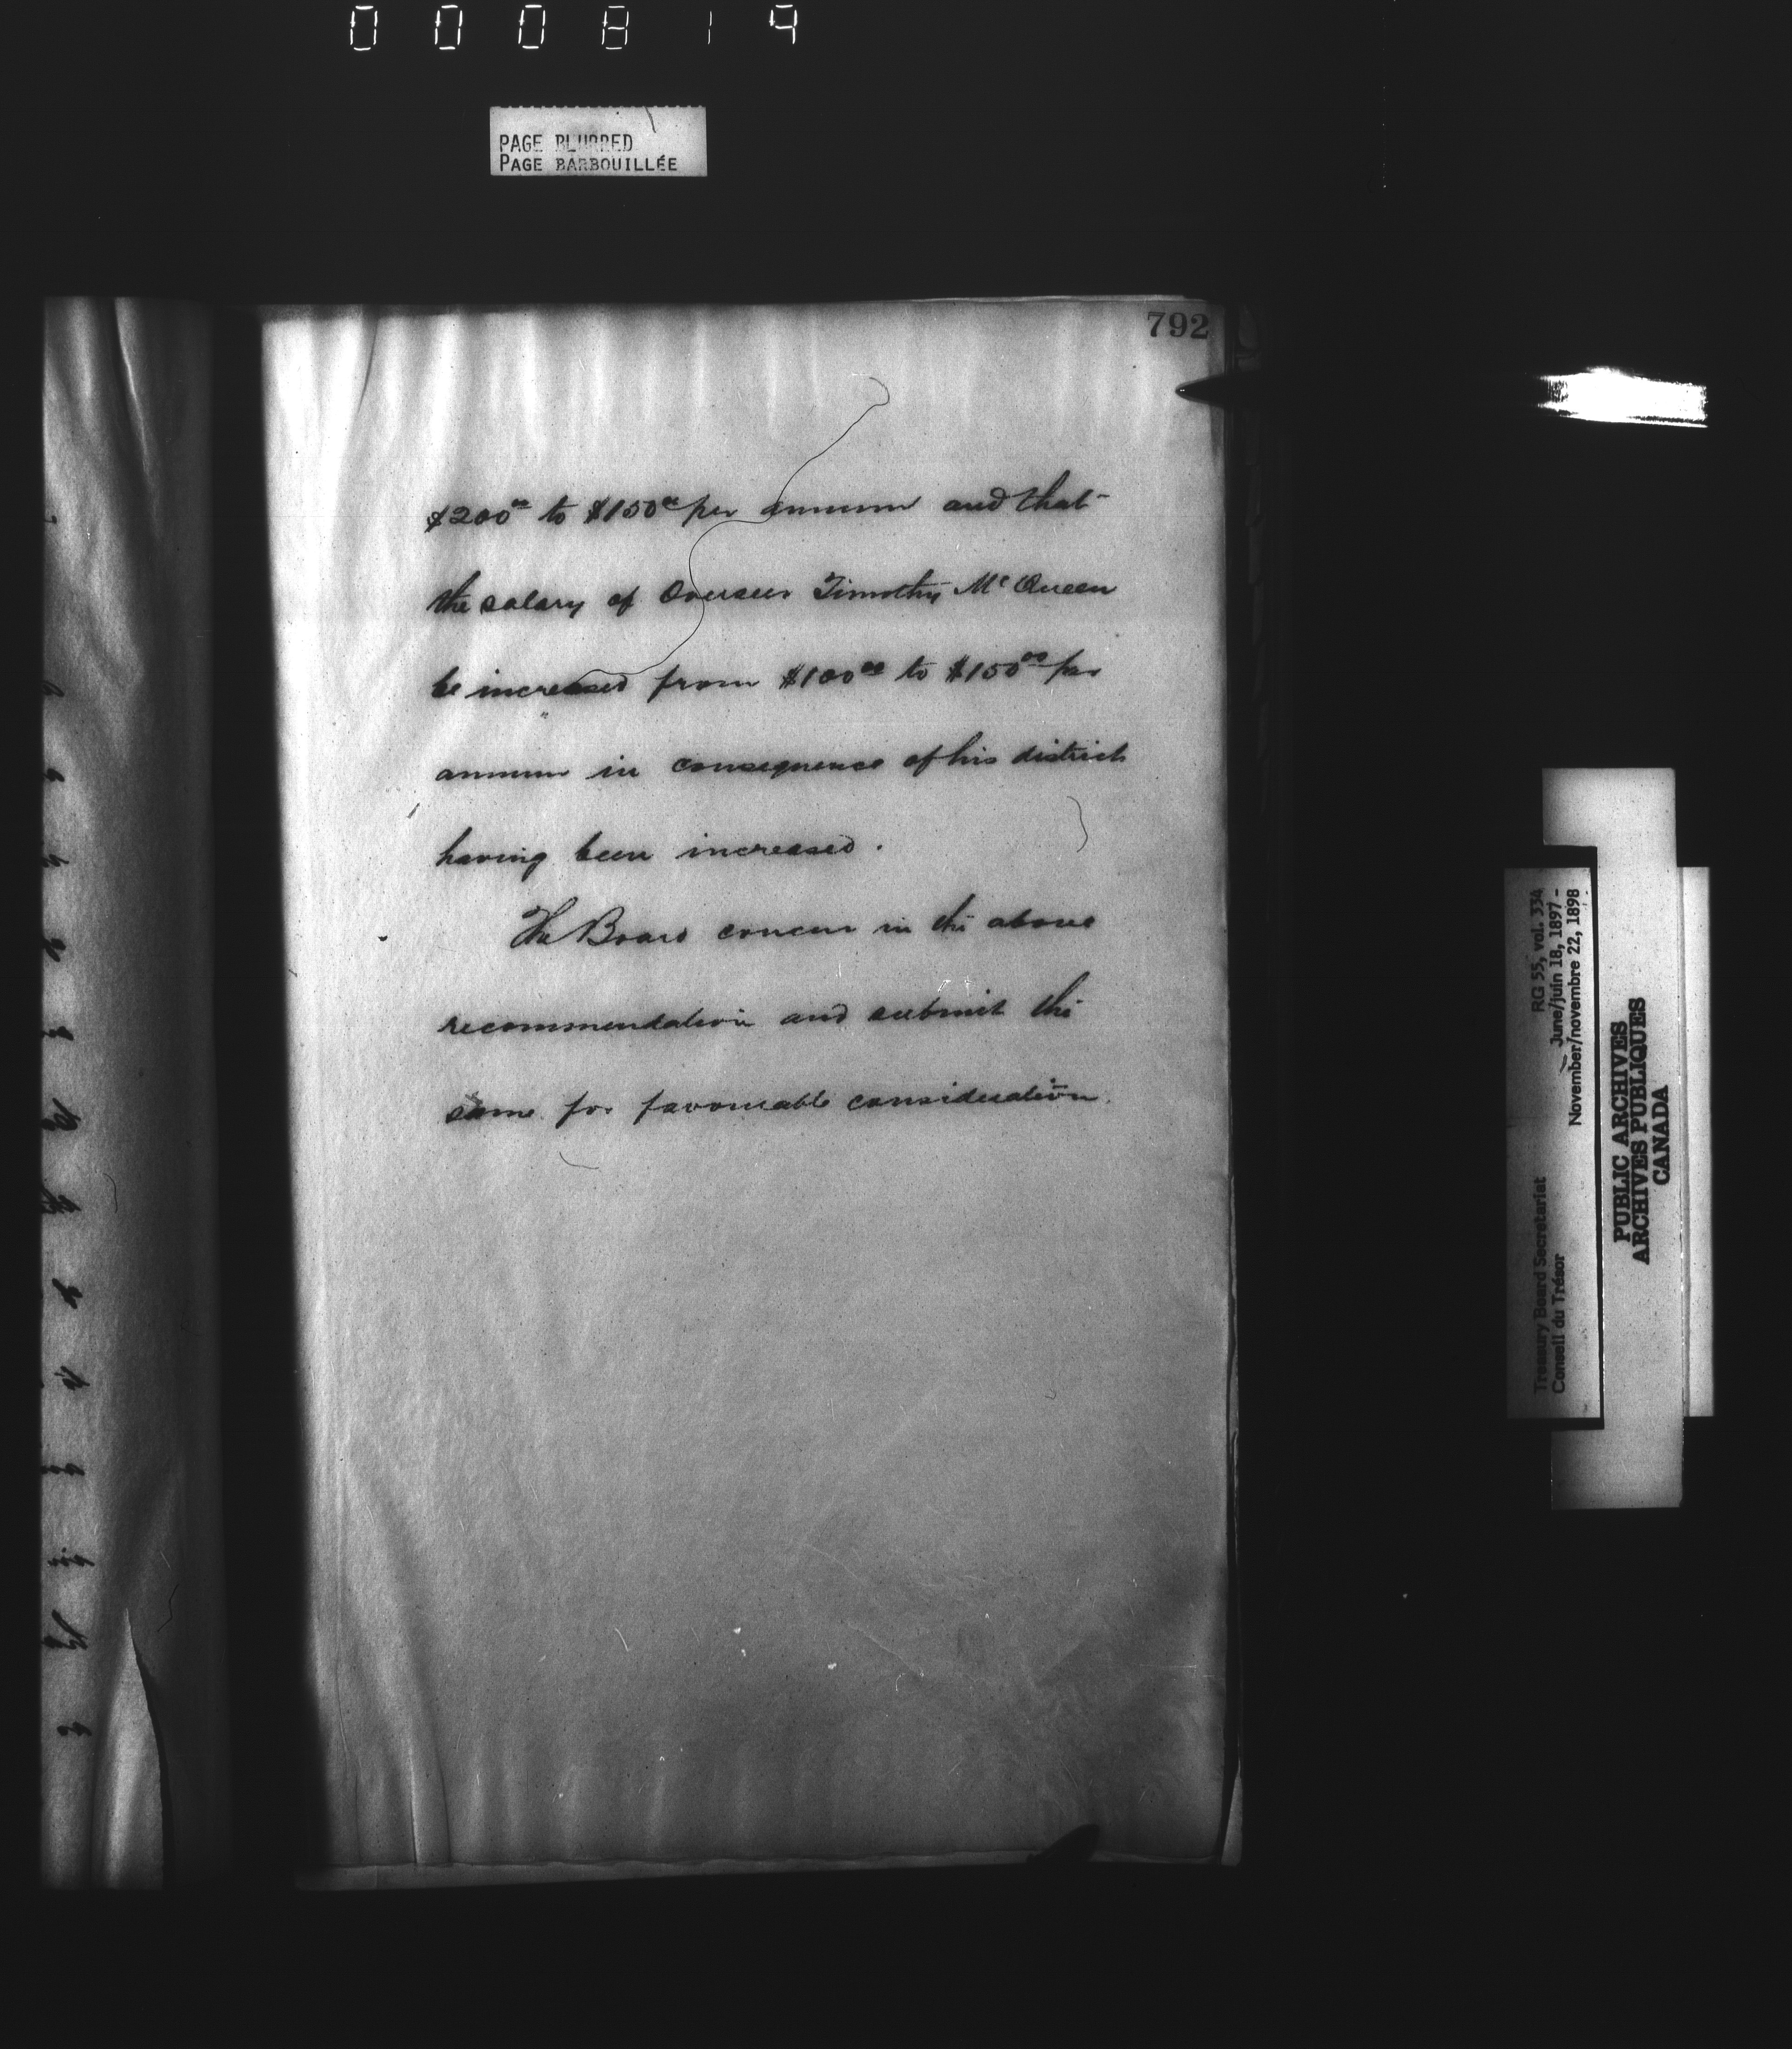 000814
PAGE BLURRED
PAGE BARBOUILLÉE
792
$200.00 to $150.00 per annum and that
the salary of Overseer Timothy McQueen
be increased from $100.00 to $150.00 per
annum in consequence of his district
having been increased.
The Board concur in the above
recommendation and submit the
same for favourable consideration.
Treasury Board Secretariat RG 55, vol. 334
Conseil du Trésor June/juin 18, 1897 -
November/novembre 22, 1898
PUBLIC ARCHIVES
ARCHIVES PUBLIQUES
CANADA